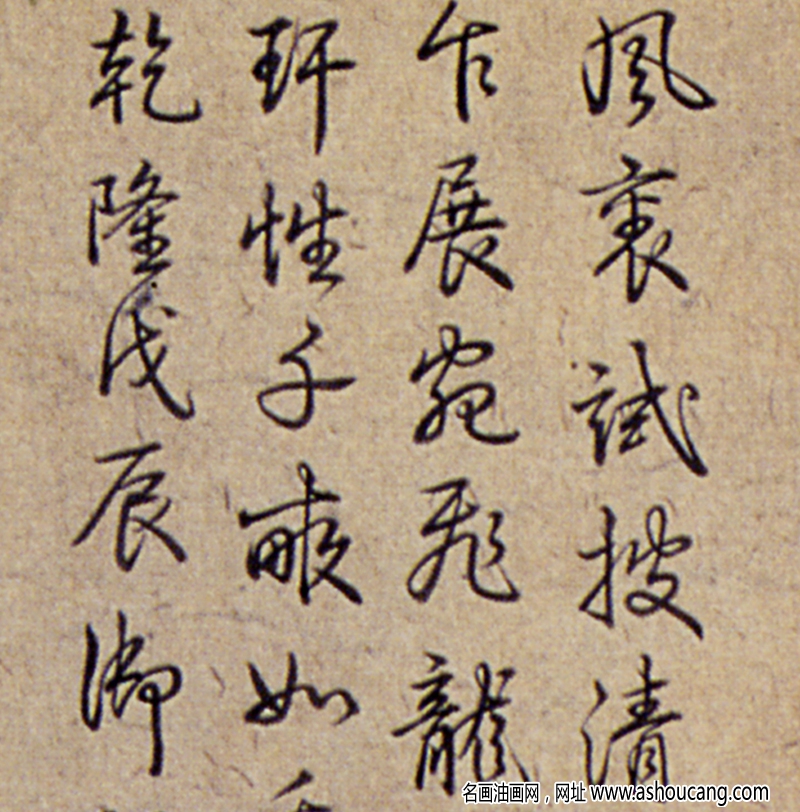 風裏試披清
乍展宛飛龍
玕性千畝如
乾隆戊辰御
名画油画网，网址 www.ashoucang.com